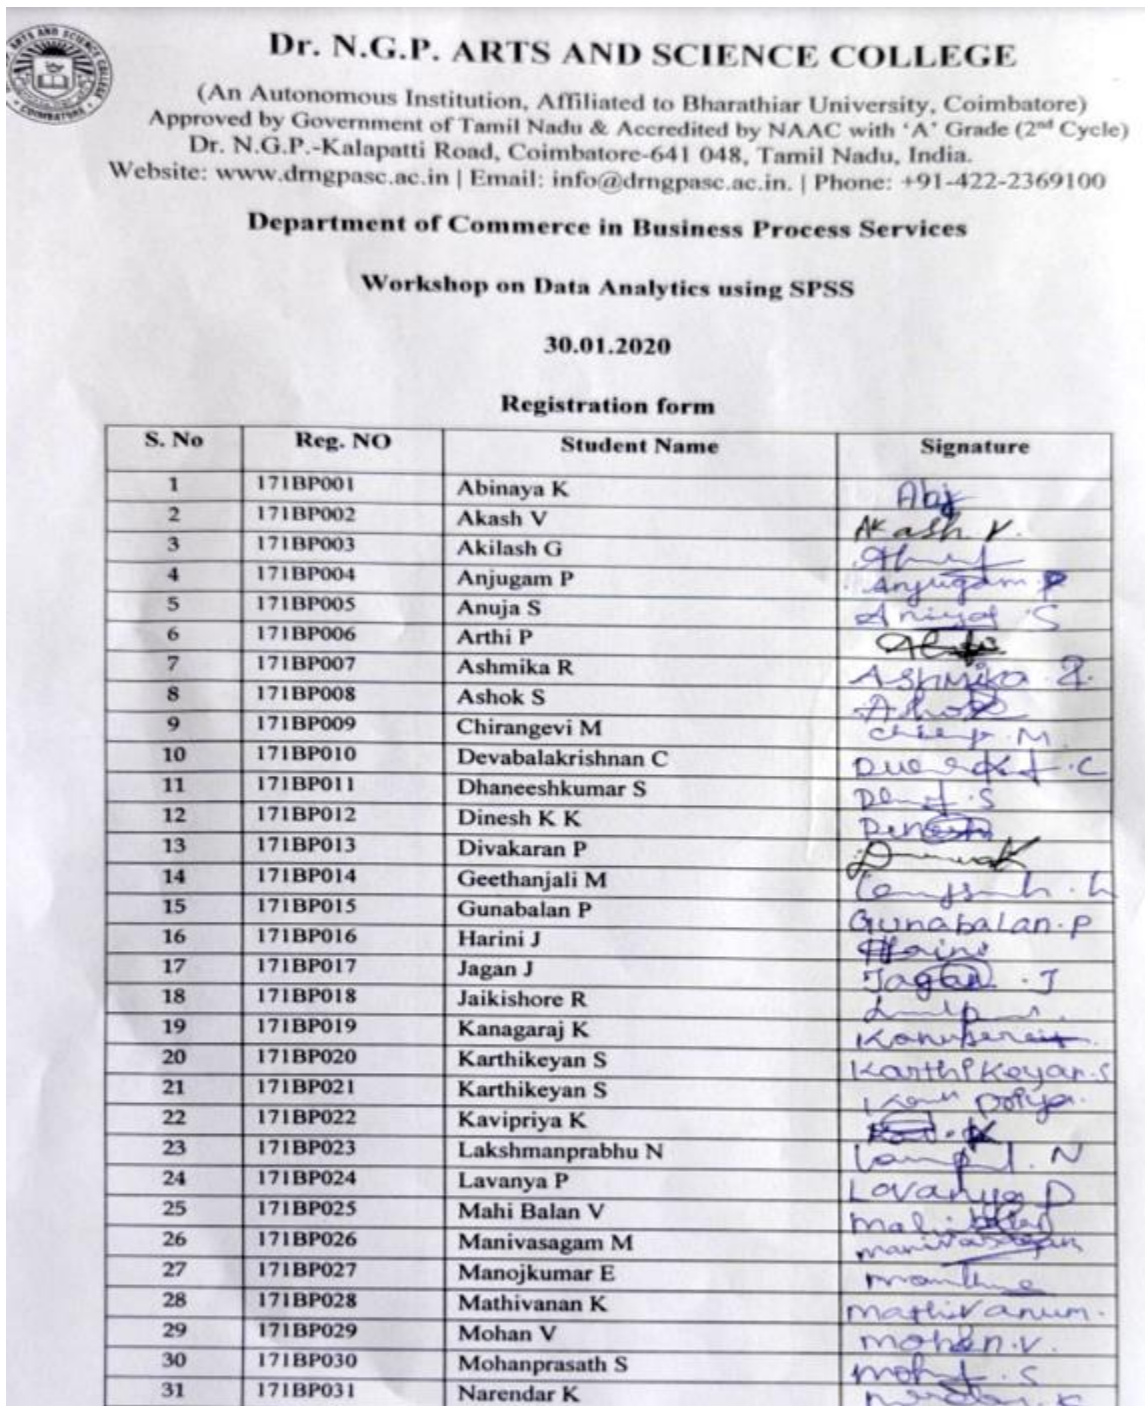 ARTS AND SCIENCE COLLEGE
COIMBATORE
Dr. N.G.P. ARTS AND SCIENCE COLLEGE
(An Autonomous Institution, Affiliated to Bharathiar University, Coimbatore)
Approved by Government of Tamil Nadu & Accredited by NAAC with 'A' Grade (2nd Cycle)
Dr. N.G.P.-Kalapatti Road, Coimbatore-641 048, Tamil Nadu, India.
Website: www.drngpasc.ac.in | Email: info@drngpasc.ac.in. | Phone: +91-422-2369100
Department of Commerce in Business Process Services
Workshop on Data Analytics using SPSS
30.01.2020
Registration form
S. No Reg. NO Student Name Signature
1 171BP001 Abinaya K
2 171BP002 Akash V Akash V.
3 171BP003 Akilash G
4 171BP004 Anjugam P Anjugam P
5 171BP005 Anuja S
6 171BP006 Arthi P
7 171BP007 Ashmika R Ashmika R.
8 171BP008 Ashok S Ashok
9 171BP009 Chirangevi M
10 171BP010 Devabalakrishnan C
11 171BP011 Dhaneeshkumar S
12 171BP012 Dinesh K K Dinesh
13 171BP013 Divakaran P
14 171BP014 Geethanjali M
15 171BP015 Gunabalan P Gunabalan.P
16 171BP016 Harini J
17 171BP017 Jagan J Jagan . J
18 171BP018 Jaikishore R
19 171BP019 Kanagaraj K
20 171BP020 Karthikeyan S Karthikeyan.S
21 171BP021 Karthikeyan S
22 171BP022 Kavipriya K
23 171BP023 Lakshmanprabhu N
24 171BP024 Lavanya P Lavanya P
25 171BP025 Mahi Balan V
26 171BP026 Manivasagam M
27 171BP027 Manojkumar E
28 171BP028 Mathivanan K
29 171BP029 Mohan V Mohan.V.
30 171BP030 Mohanprasath S
31 171BP031 Narendar K